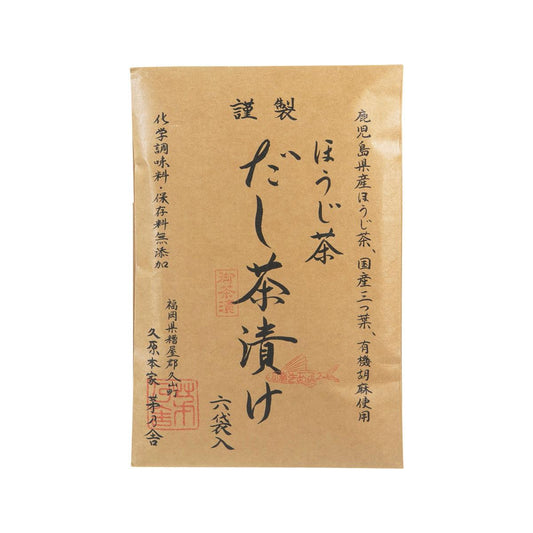 謹製
鹿児島県産ほうじ茶、国産三つ葉、有機胡麻使用
ほうじ茶
だし茶漬け
六袋入
御茶漬
福岡県糟屋郡久山町
久原本家 茅乃舎
化学調味料・保存料無添加